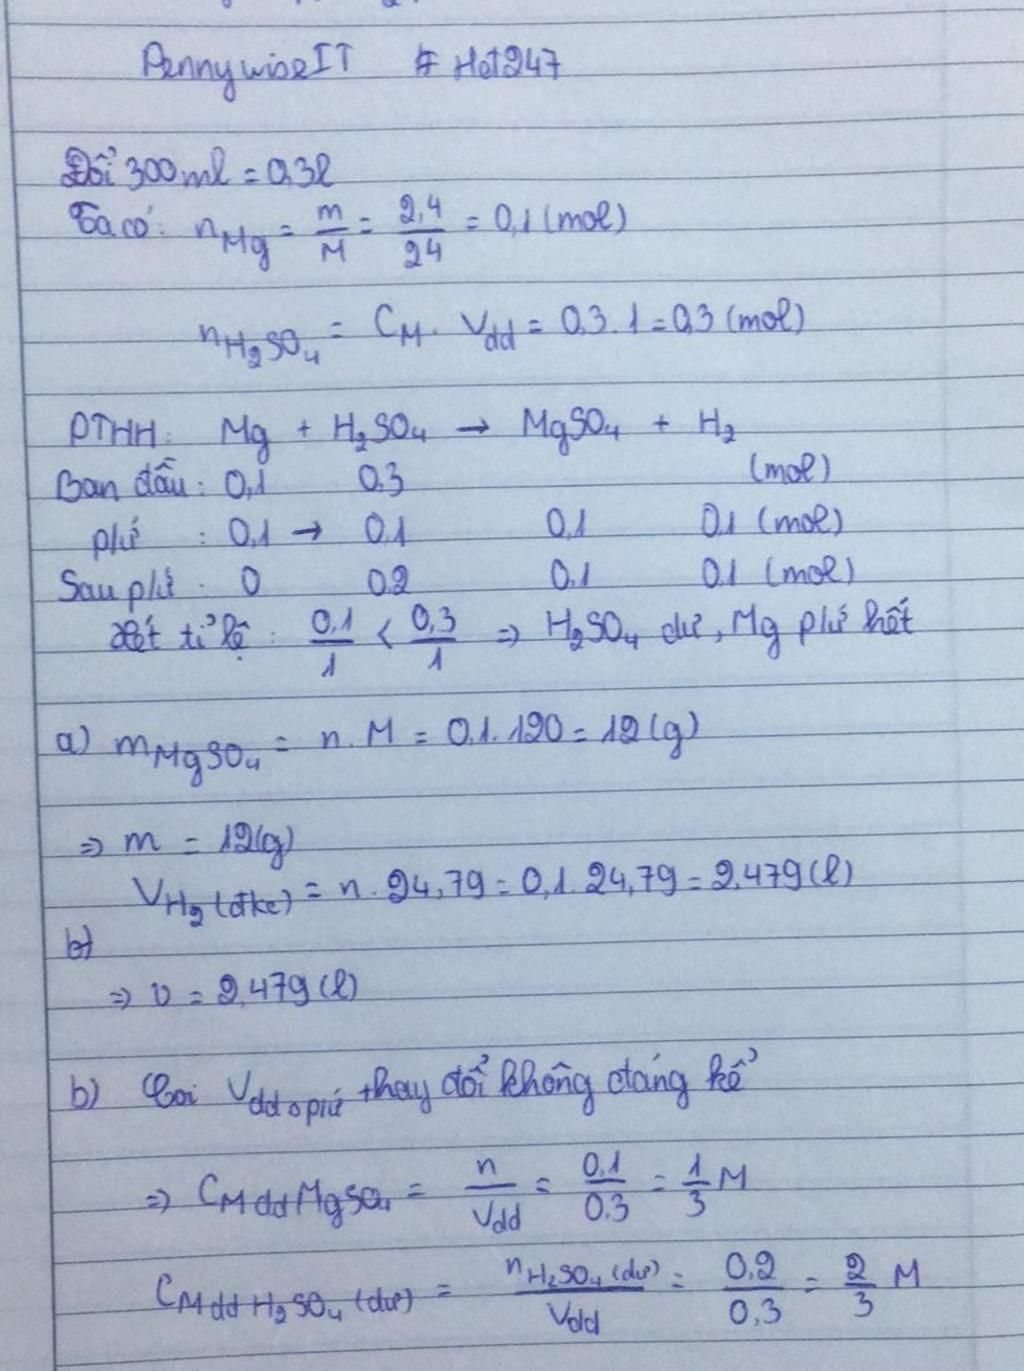 PennywiseIT # Hot247
Đổi 300ml = 0,3l
Ta có: nMg = m/M = 2,4/24 = 0,1 (mol)
nH2SO4 = CM. Vdd = 0,3. 1 = 0,3 (mol)
PTHH: Mg + H2SO4 → MgSO4 + H2
Ban đầu: 0,1 0,3 (mol)
pứ : 0,1 → 0,1 0,1 0,1 (mol)
Sau pứ : 0 0,2 0,1 0,1 (mol)
Xét tỉ lệ : 0,1/1 < 0,3/1 ⇒ H2SO4 dư, Mg pứ hết
a) mMgSO4 = n. M = 0,1. 120 = 12 (g)
⇒ m = 12(g)
VH2 (đkc) = n. 24,79 = 0,1. 24,79 = 2,479 (l)
b)
⇒ V = 2,479 (l)
b) Coi Vdd pứ thay đổi không đáng kể
⇒ CM dd MgSO4 = n/Vdd = 0,1/0,3 = 1/3 M
CM dd H2SO4 (dư) = nH2SO4 (dư)/Vdd = 0,2/0,3 = 2/3 M